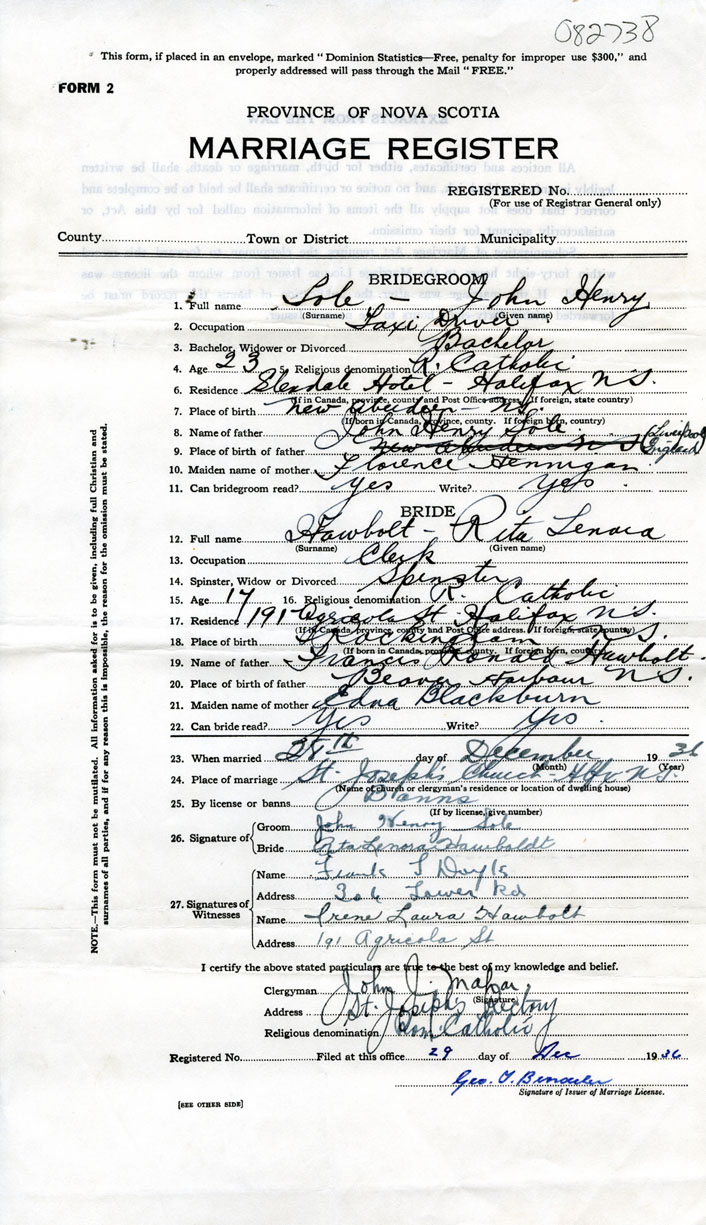 082738
This form, if placed in an envelope, marked "Dominion Statistics—Free, penalty for improper use $300," and
properly addressed will pass through the Mail "FREE."
FORM 2
PROVINCE OF NOVA SCOTIA
MARRIAGE REGISTER
REGISTERED No.
(For use of Registrar General only)
County Town or District Municipality
BRIDEGROOM
1. Full name Sole - John Henry
(Surname) (Given name)
2. Occupation Taxi Driver
3. Bachelor, Widower or Divorced Bachelor
4. Age 23 5. Religious denomination R. Catholic
6. Residence Glendale Hotel - Halifax N.S.
(If in Canada, province, county and Post Office address. If foreign, state country)
7. Place of birth New Aberdeen - N.S.
(If born in Canada, province, county. If foreign born, country)
8. Name of father John Henry Sole
9. Place of birth of father New Aberdeen N S (Liverpool England)
10. Maiden name of mother Florence Hennigan
11. Can bridegroom read? Yes Write? Yes
BRIDE
12. Full name Hawbolt - Rita Lenora
(Surname) (Given name)
13. Occupation Clerk
14. Spinster, Widow or Divorced Spinster
15. Age 17 16. Religious denomination R. Catholic
17. Residence 191 Agricola St Halifax N.S.
(If in Canada, province, county and Post Office address. If foreign, state country)
18. Place of birth Rockingham N.S.
(If born in Canada, province, county. If foreign born, country)
19. Name of father Francis Ronald Hawbolt
20. Place of birth of father Beaver Harbour N.S.
21. Maiden name of mother Edna Blackburn
22. Can bride read? Yes Write? Yes
23. When married 28th day of December 1936
(Month) (Year)
24. Place of marriage St. Joseph's Church - Hfx N.S.
(Name of church or clergyman's residence or location of dwelling house)
25. By license or banns Banns
(If by license, give number)
26. Signature of Groom John Henry Sole
Bride Rita Lenora Hawboldt
27. Signatures of Witnesses
Name Frank J Doyle
Address 306 Lower Rd
Name Irene Laura Hawbolt
Address 191 Agricola St
I certify the above stated particulars are true to the best of my knowledge and belief.
Clergyman John J. Mahar
(Signature)
Address St. Joseph's Rectory
Religious denomination Rom Catholic
Registered No. Filed at this office 29 day of Dec 1936
Geo. T.
Signature of Issuer of Marriage License.
[SEE OTHER SIDE]
NOTE.—This form must not be mutilated. All information asked for is to be given, including full Christian and
surnames of all parties, and if for any reason this is impossible, the reason for the omission must be stated.